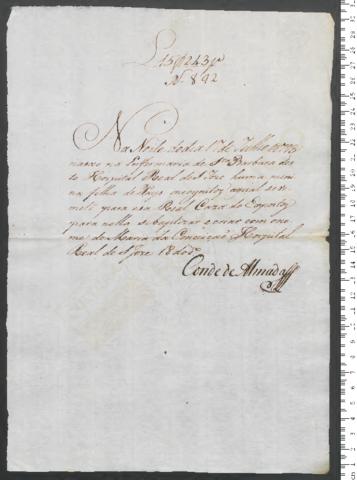 L 15 f 243 v
N. 892
Na Noite do dia 17 de Julho de
nasceo na Enfermaria de Sta Barbara des
te Hospital Real de S. Joze huma meni
na filha de Pays incognitos, a qual se re
mete para essa Real Caza dos Expostos
para nella se baptizar e criar com o no
me de Maria da Conceição Hospital
Real de S. Joze 18 do do
Conde de Almada